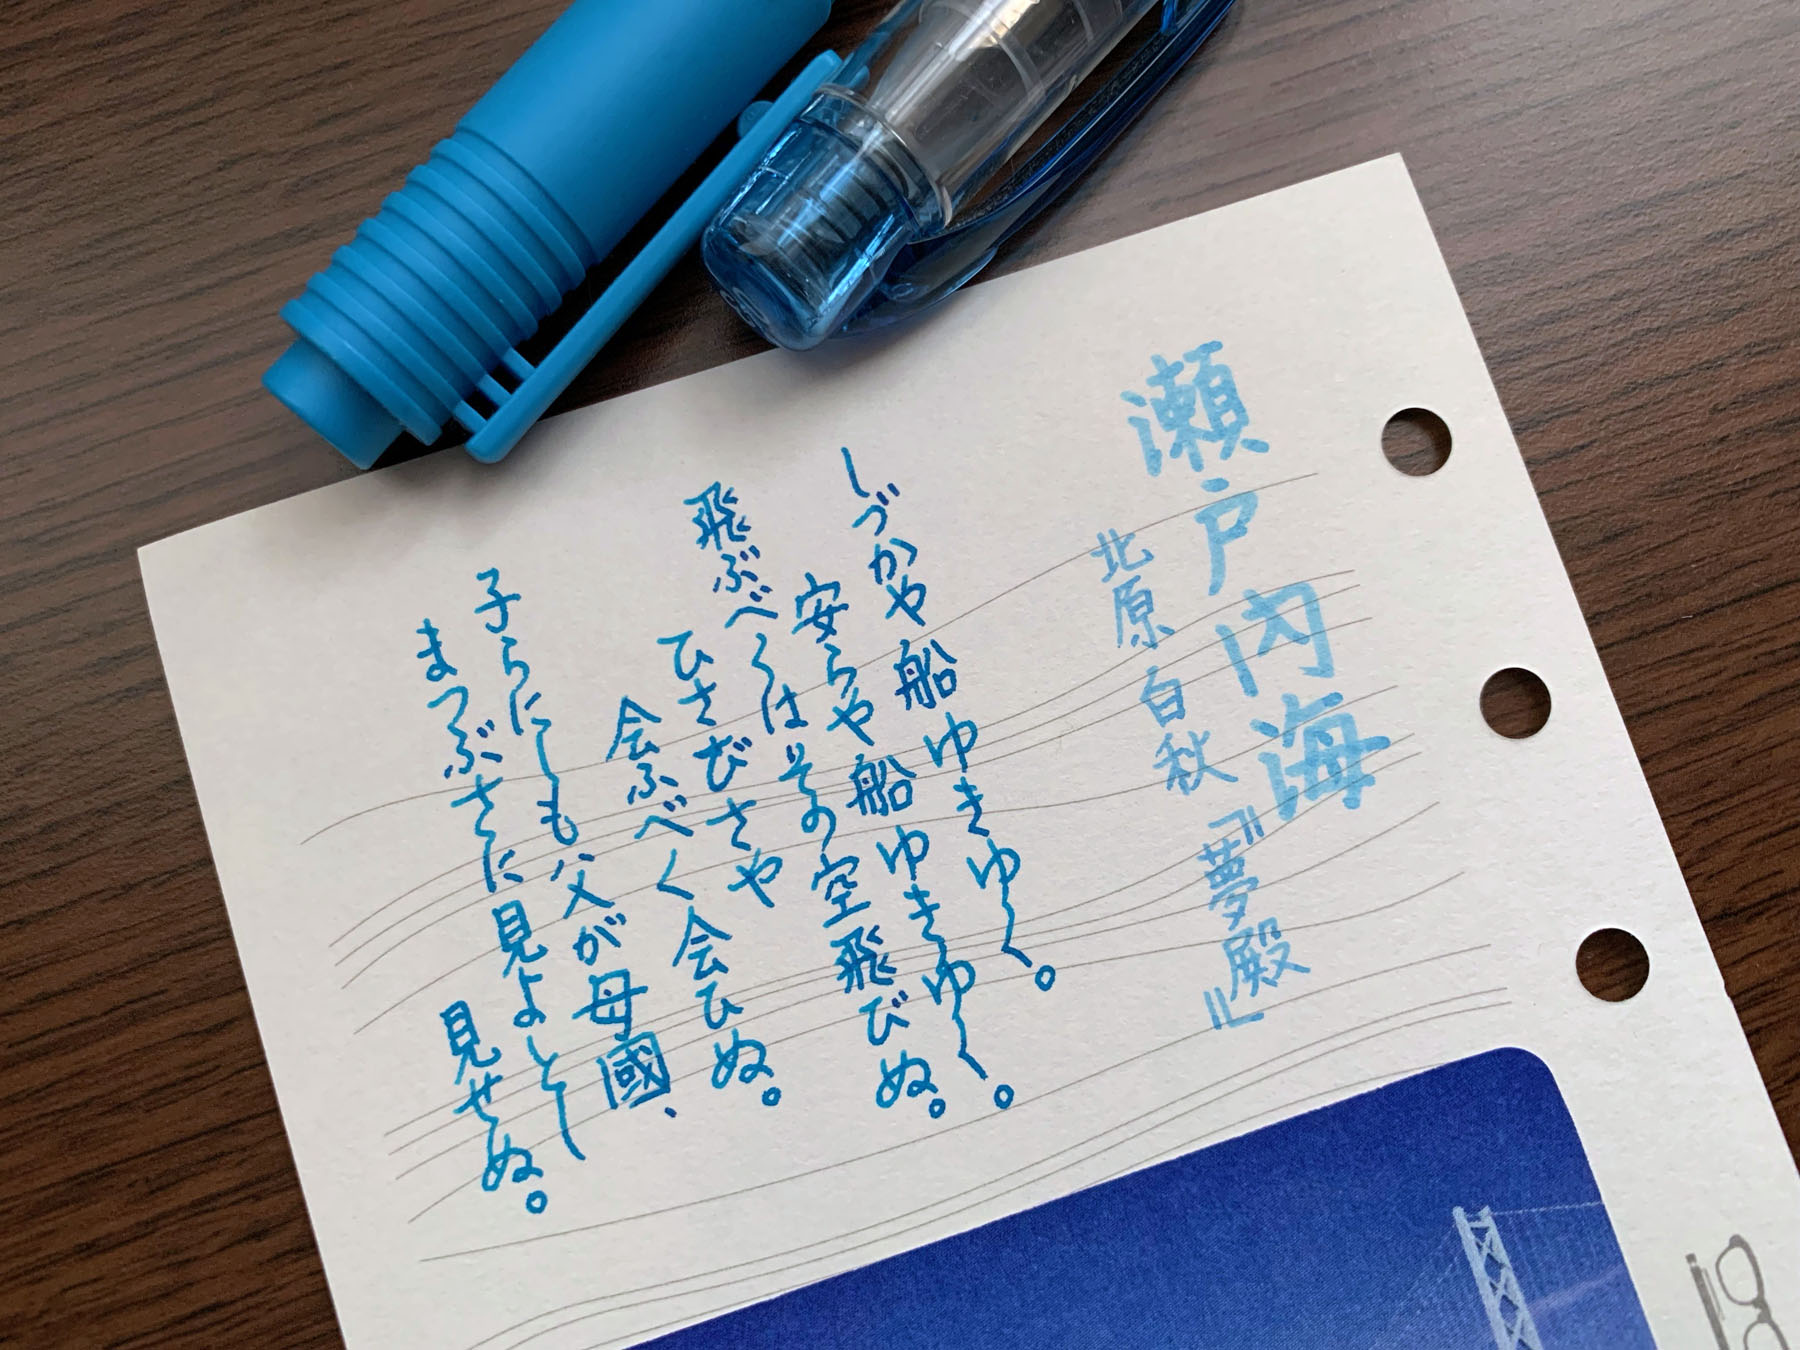 瀬戸内海
北原白秋『夢殿』
しづかや船ゆきゆく。
安らや船ゆきゆく。
飛ぶべくはその空飛びぬ。
ひさびさや
会ふべく会ひぬ。
子らにしも父が母國、
まつぶさに見よとし
見せぬ。